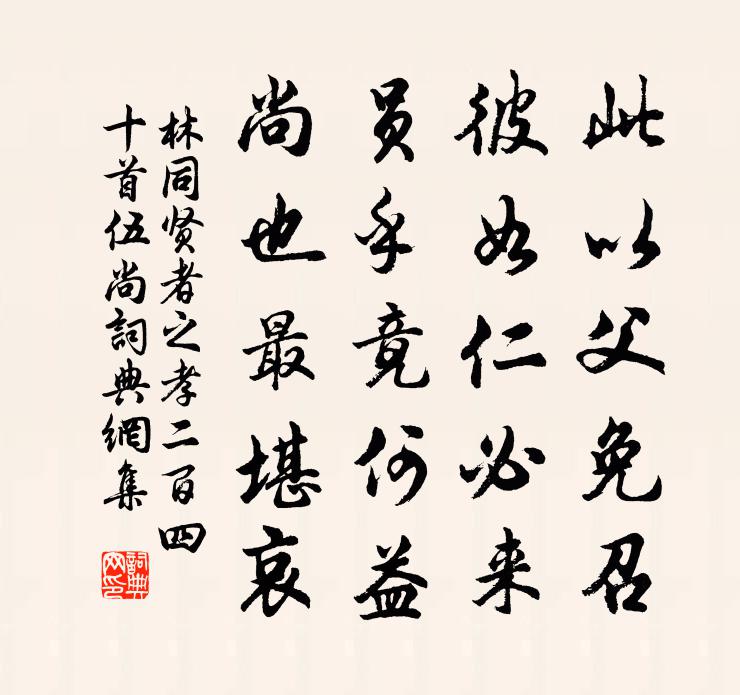 此以父免召
彼如仁必来
员乎竟何益
尚也最堪哀
林同贤者之孝二百四
十首伍尚詞典網集
詞典
网印